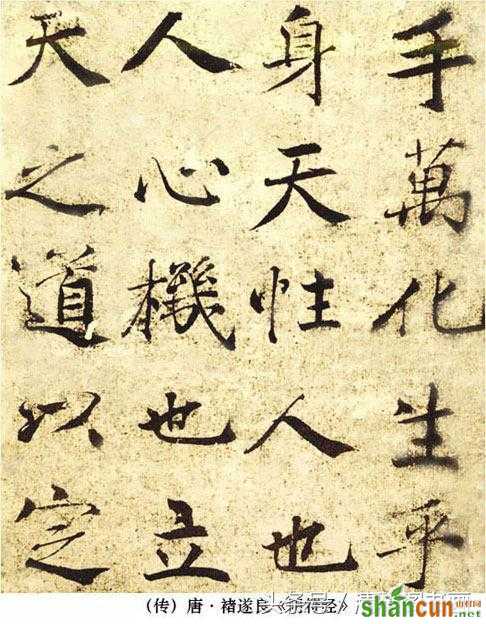 手萬化生乎
身天性人也
人心機也立
天之道以定
（传）唐·褚遂良《阴符经》
头条号 /
shancun
.net